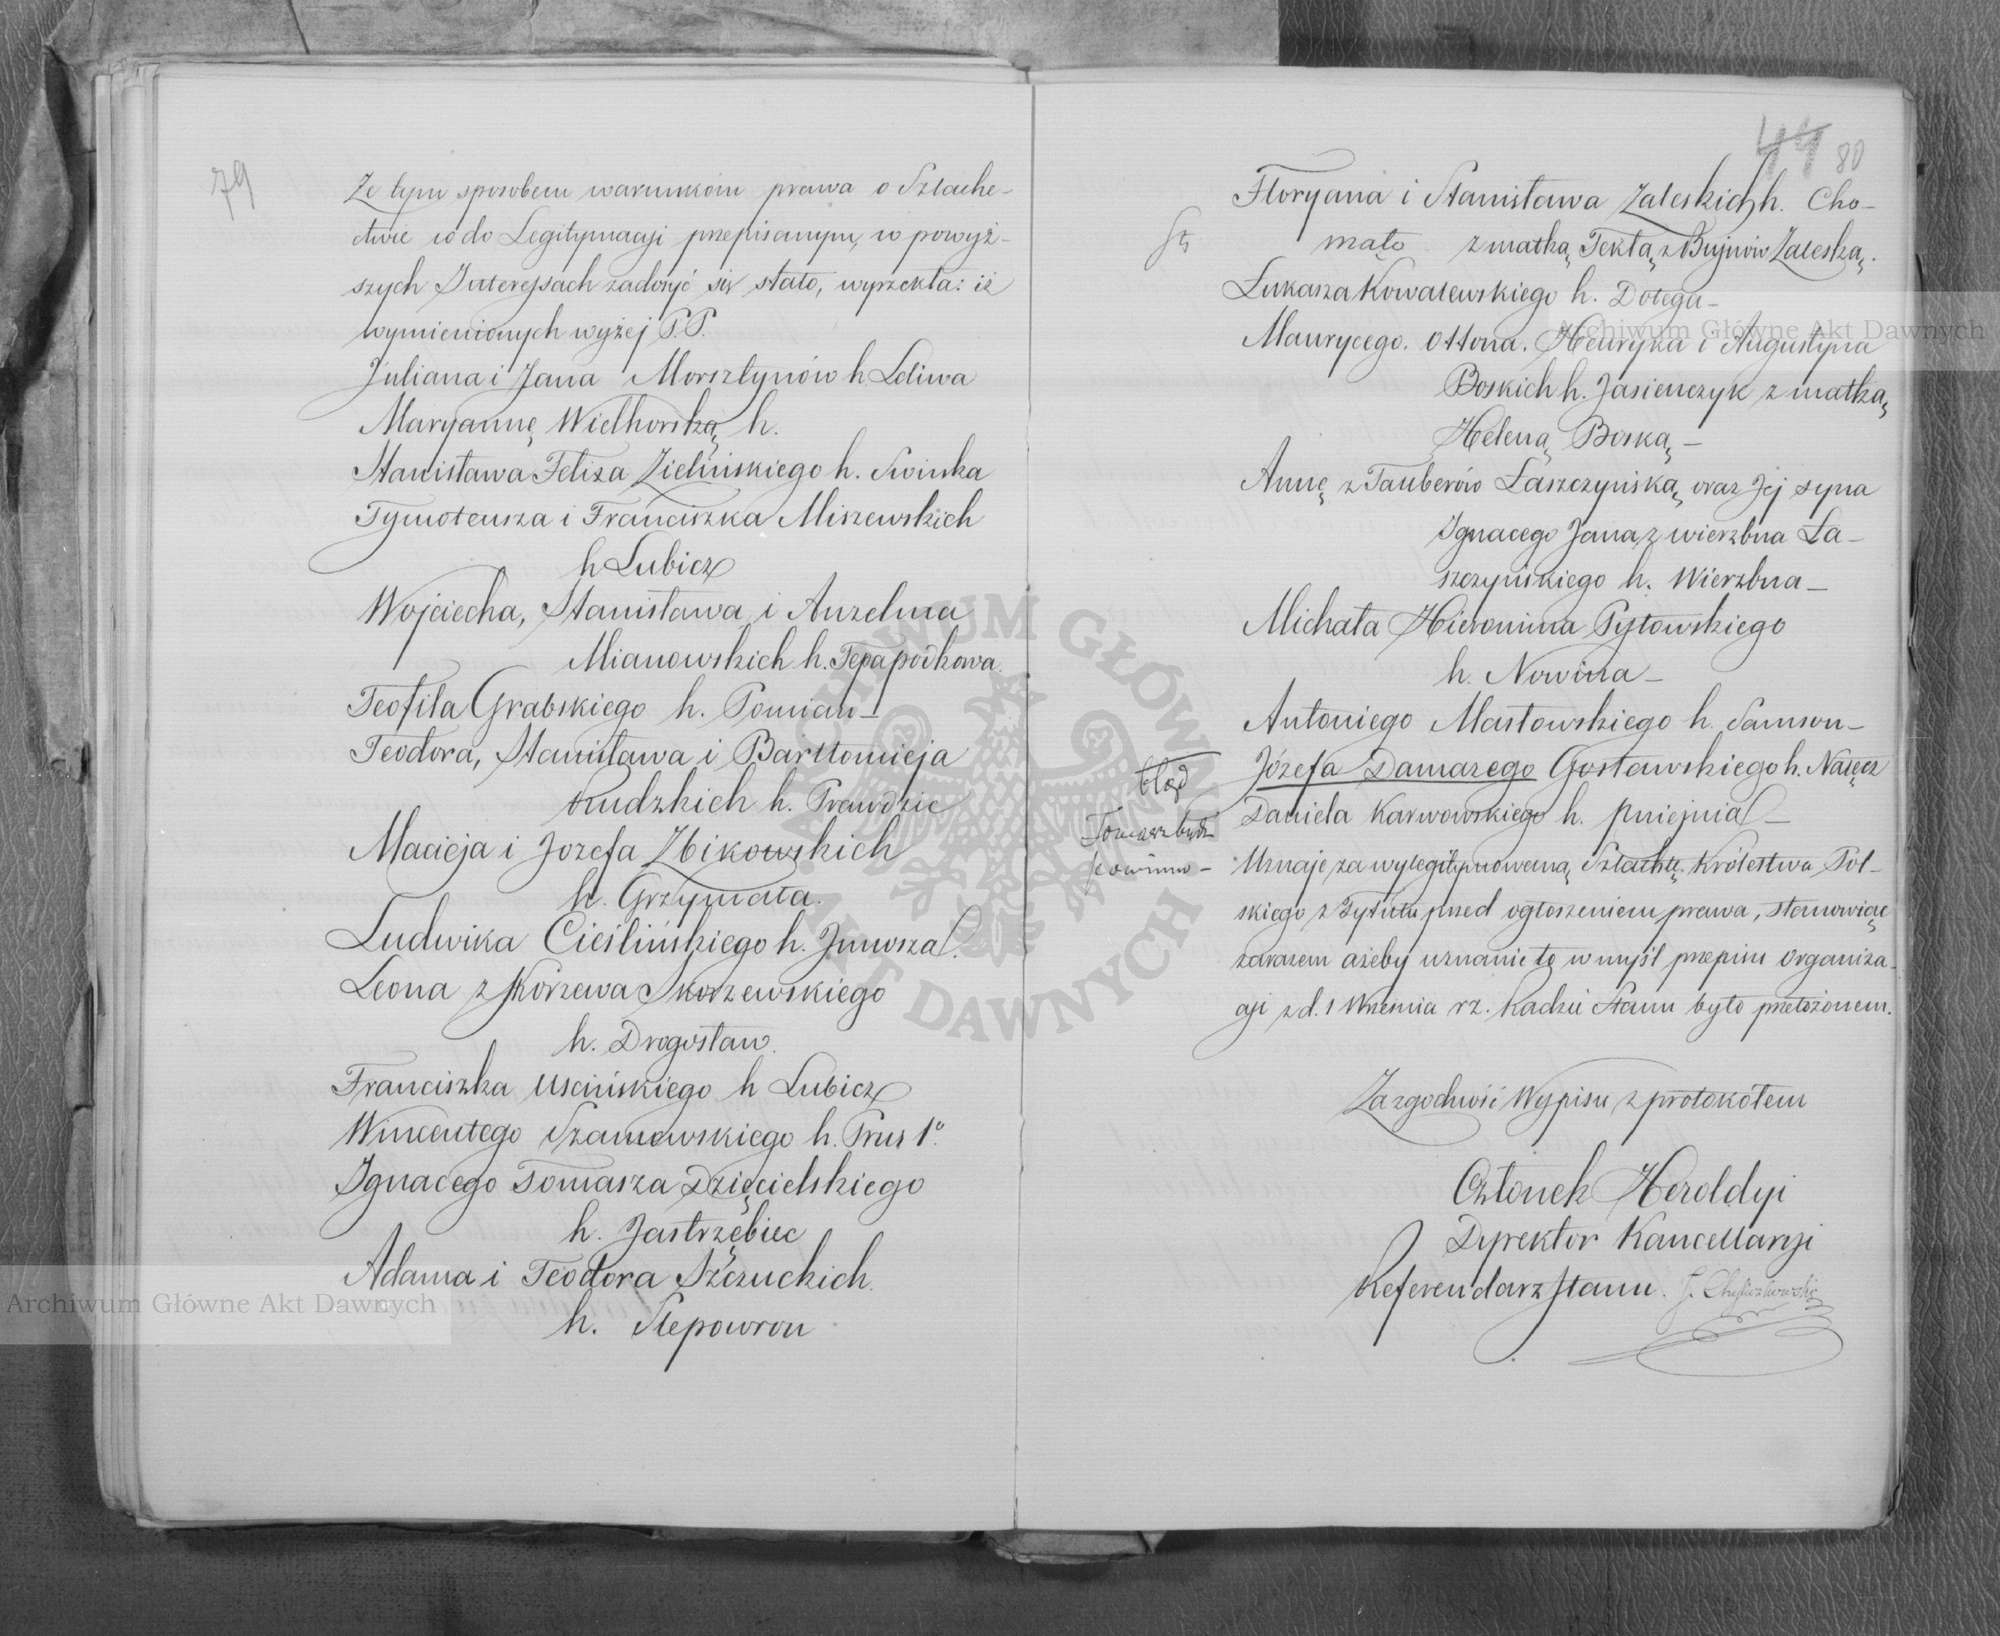 79
Ze tym sposobem warunkom prawa o Szlache-
ctwie co do Legitymacyi przepisanym, w powyż-
szych Interessach zadosyć się stało, wyrzekła: iż
wymienionych wyżej P.P.
Juliana i Jana Morsztynów h Leliwa
Maryannę Wielhorską h.
Stanisława Felixa Zielińskiego h. Swinka
Tymoteusza i Franciszka Miszewskich
h Lubicz
Wojciecha, Stanisława i Anzelma
Mianowskich h. Tępapodkowa.
Teofila Grabskiego h. Pomian –
Teodora, Stanisława i Bartłomieja
Rudzkich h. Prawdzic
Macieja i Jozefa Zbikowskich
h. Grzymała.
Ludwika Cieślińskiego h. Junosza.
Leona z Skorzewa Skorzewskiego
h. Drogosław.
Franciszka Uscińskiego h Lubicz
Wincentego Szamowskiego h. Prus 1º.
Ignacego Tomasza Dzięcielskiego
h. Jastrzębiec
Adama i Teodora Szczuckich.
h. Slepowron
44 80
Floryana i Stanisława Zaleskich h. Cho-
mąto z matką Teklą z Bujnów Zaleską.
Łukasza Kowalewskiego h. Dołęga –
Maurycego. Ottona. Henryka i Augustyna
Boskich h. Jasieńczyk z matką
Heleną Boską –
Annę z Tauberów Łaszczyńską oraz Jej syna
Ignacego Jana z wierzbna Ła-
szczyńskiego h. Wierzbna –
Michała Hieronima Pytowskiego
h. Nowina –
Antoniego Masłowskiego h. Samson –
błąd
Józefa Damazego Gosławskiego h. Nałęcz
Tomasz być
powinno –
Daniela Karwowskiego h. Pniejnia –
Uznaje za wylegitymowaną Szlachtę Królestwa Pol-
skiego z Tytułu przed ogłoszeniem prawa, stanowiąc
zarazem ażeby uznanie to w myśl przepisu Organiza-
cyi z d. 1 Wrzesnia rz. Radzie Stanu było przełożonem.
Za zgodność Wypisu z protokółem
Członek Heroldyi
Dyrektor Kancellaryi
Referendarz Stanu.
Archiwum Główne Akt Dawnych
Archiwum Główne Akt Dawnych
ARCHIWUM GŁÓWNE AKT DAWNYCH